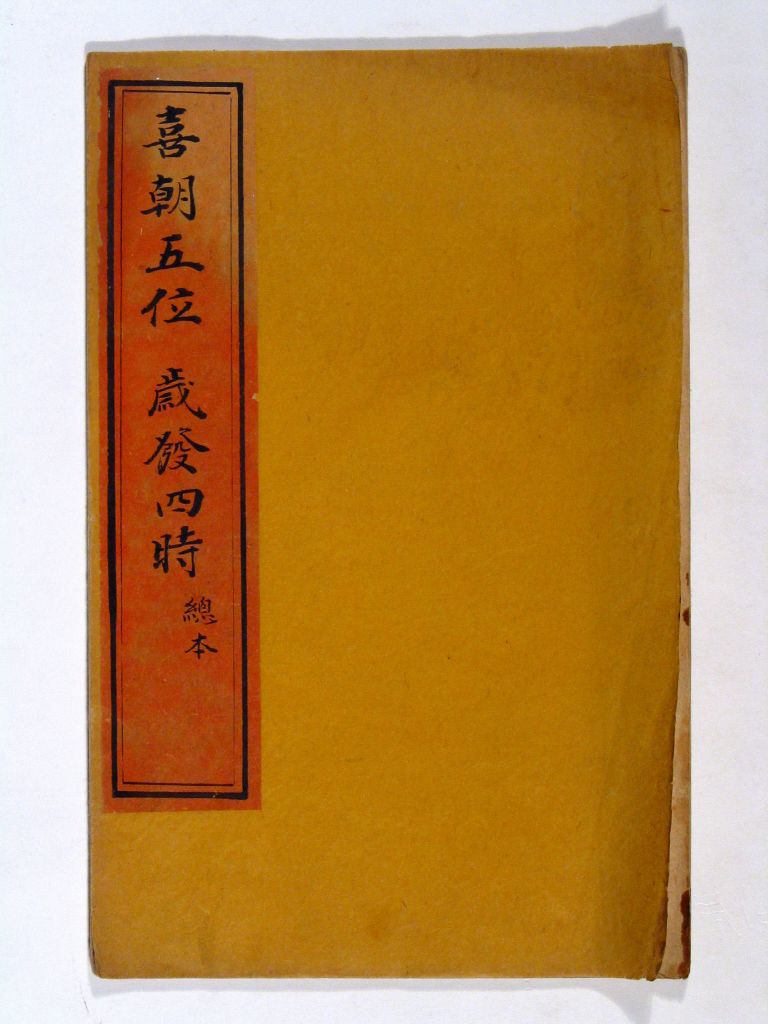 喜朝五位 歲發四時 總本